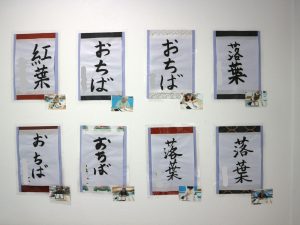 紅葉
おちば
おちば
落葉
おちば
おちば
落葉
落葉